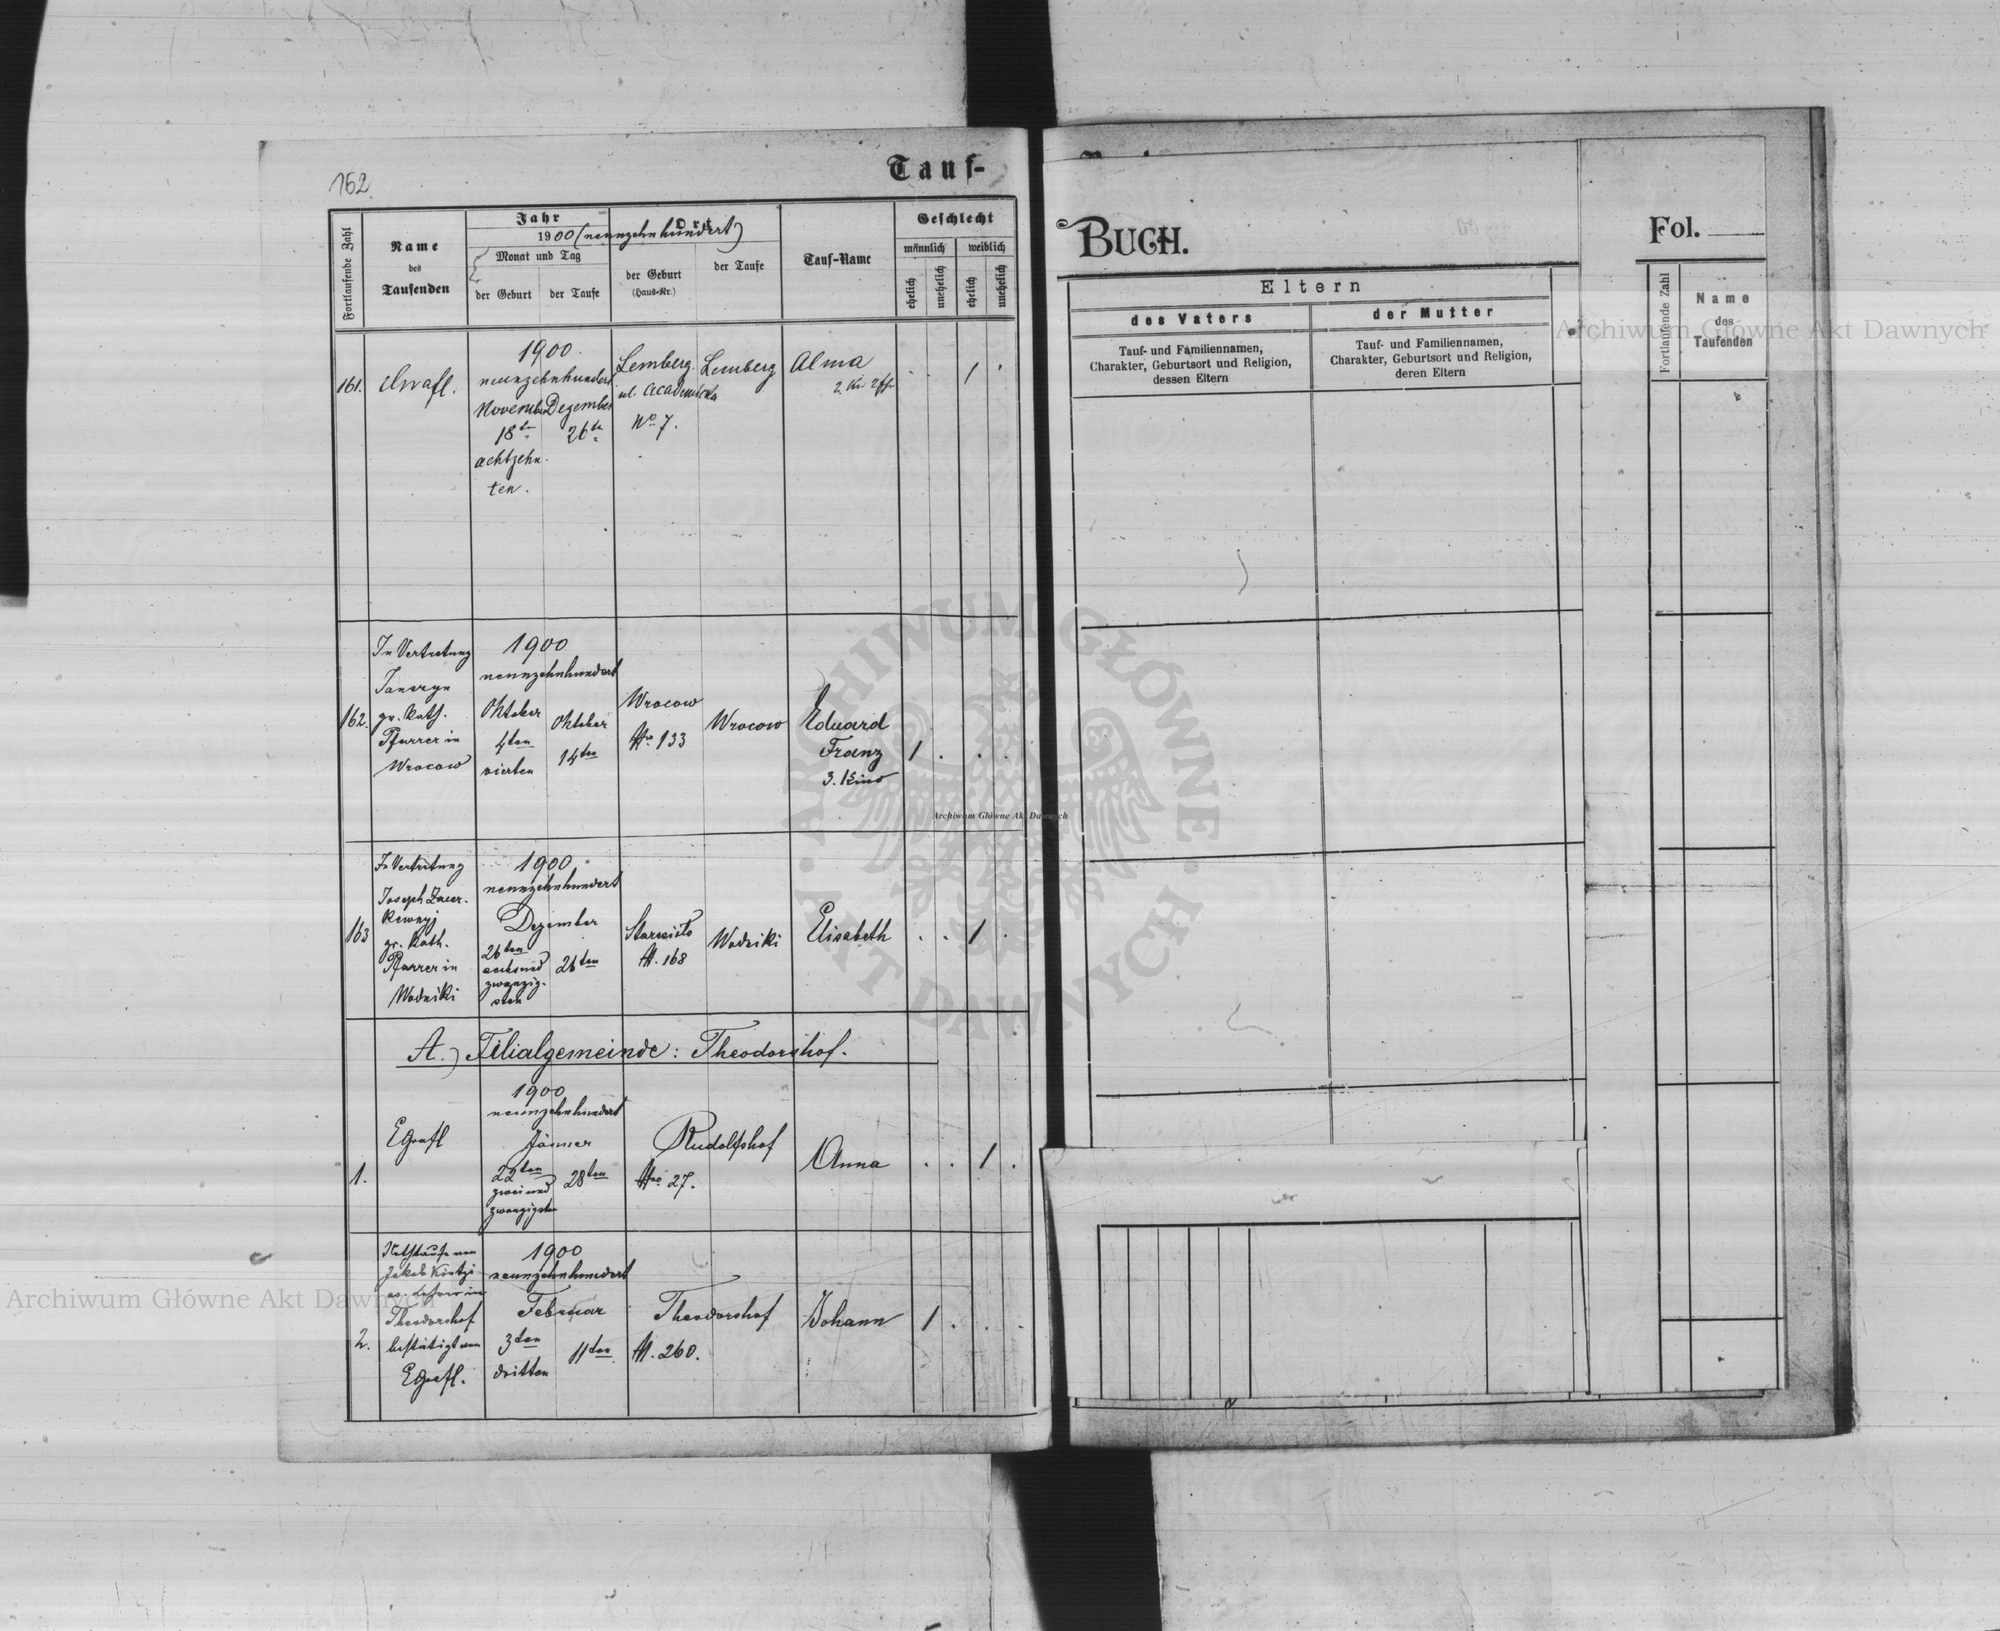 162
Tauf-
Fortlaufende Zahl
Name
des
Taufenden
Jahr
1900 (neunzehnhundert)
Monat und Tag
der Geburt
der Taufe
Ort
der Geburt
(Haus-Nr.)
der Taufe
Tauf-Name
Geschlecht
männlich
weiblich
ehelich
unehelich
ehelich
unehelich
161.
1900.
neunzehnhundert
November Dezember
18ten 26ten
achtzehn-
ten.
Lemberg.
ul. Academicka
No 7.
Lemberg
Alma
1
162.
In Vertretung
gr. kath.
Pfarrer in
Wrocow
1900
neunzehnhundert
Oktober
4ten
vierten
Oktober
14ten
Wrocow
No 133
Wrocow
Eduard
Franz
3. Kind
1
163
In Vertretung
Joseph
gr. kath.
Pfarrer in
Wodniki
1900
neunzehnhundert
Dezember
26ten
sechsund
zwanzig-
sten
26ten
Staresiolo
N. 168
Wodniki
Elisabeth
1
A.) Filialgemeinde: Theodorshof.
1.
1900
neunzehnhundert
Jänner
22ten
zweiund
zwanzigsten
28ten
Rudolfshof
No 27.
Anna
1
2.
Nothtaufe von
Jakob
ev. Lehrer in
Theodorshof
bestätigt von
1900
neunzehnhundert
Februar
3ten
dritten
11ten
Theodorshof
N. 260.
Johann
1
BUCH.
Eltern
des Vaters
der Mutter
Tauf- und Familiennamen,
Charakter, Geburtsort und Religion,
dessen Eltern
Tauf- und Familiennamen,
Charakter, Geburtsort und Religion,
deren Eltern
Fol.
Fortlaufende Zahl
Name
des
Taufenden
Archiwum Główne Akt Dawnych
Archiwum Główne Akt Dawnych
Archiwum Główne Akt Dawnych
ARCHIWUM GŁÓWNE · AKT DAWNYCH ·